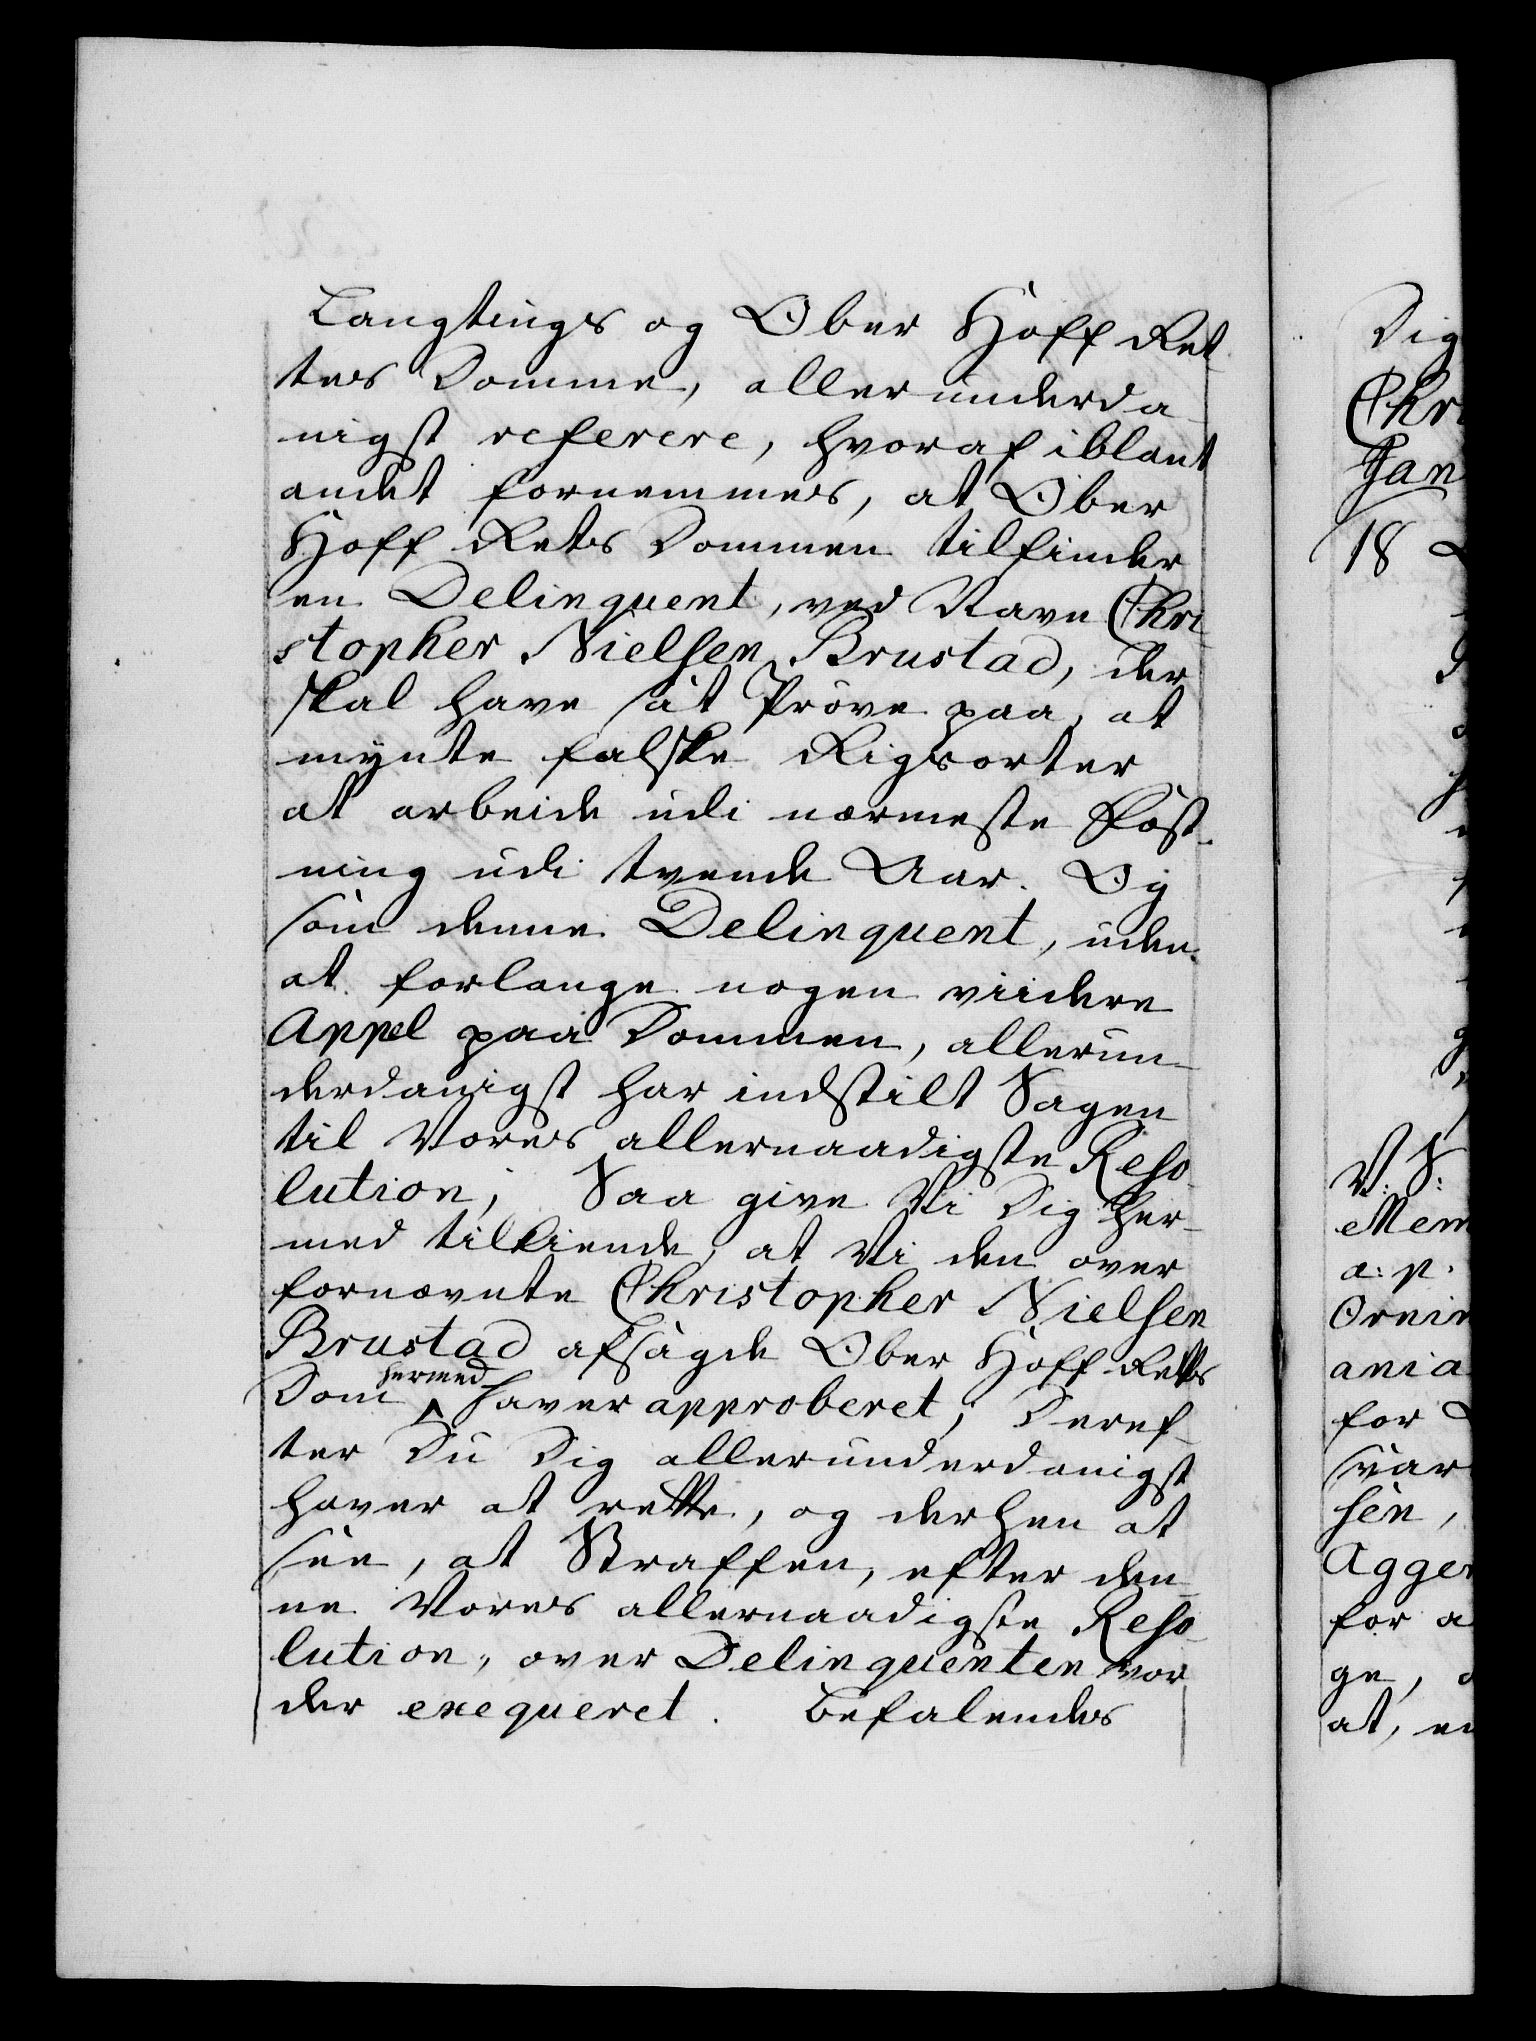 Laugtings og Ober Hoff Ret-
tes Domme, allerunderda-
nigst referere, hvoraf iblant
andet fornemmes, at Ober
Hoff Rets Dommen tilfinder
en Delinquent, ved Navn Chri-
stopher Nielsen Brustad, der
skal have sat Prøve paa, at
mynte falske Rigsorter
at arbeide udi nærmeste Fæst-
ning udi tvende Aar. Og
som denne Delinquent, uden
at forlange nogen viidere
Appel paa Dommen, allerun-
derdanigst har indstilt Sagen
til Vores allernaadigste Reso-
lution; Saa give Vi Dig her-
med tilkiende, at Vi den over
fornævnte Christopher Nielsen
Brustad afsagde Ober Hoff Retts
Dom hermed haver approberet; Deref-
ter Du Dig allerunderdanigst
haver at rette, og derhen at
see, at Straffen, efter den-
ne Vores allernaadigste Reso-
lution, over Delinquenten vor-
der exequeret. Befalendes
Dig
Chri
Jan
18
V: S:
Mem
a: p.
for
Agger
for a
ge,
at, en